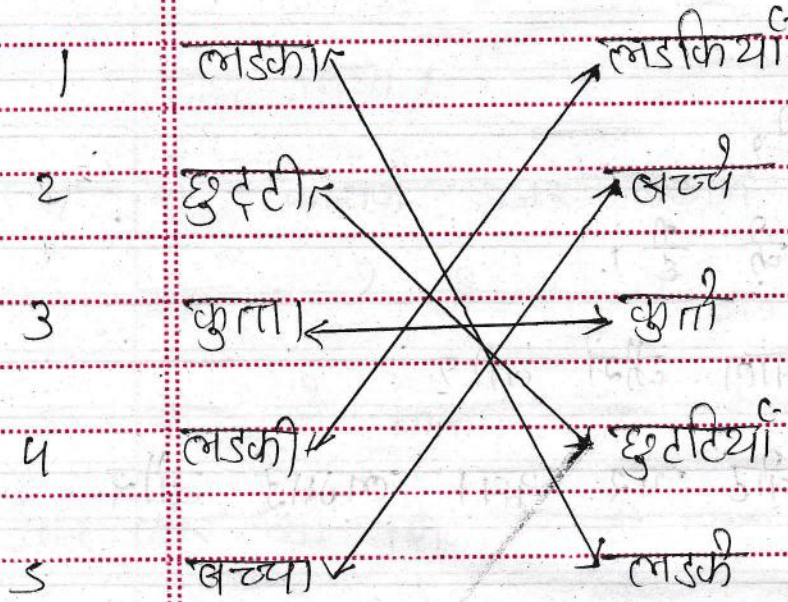 1 लडका लडकियाँ
2 छुट्टी बच्चे
3 कुत्ता कुत्ते
4 लडकी छुटटियाँ
5 बच्चा लडके